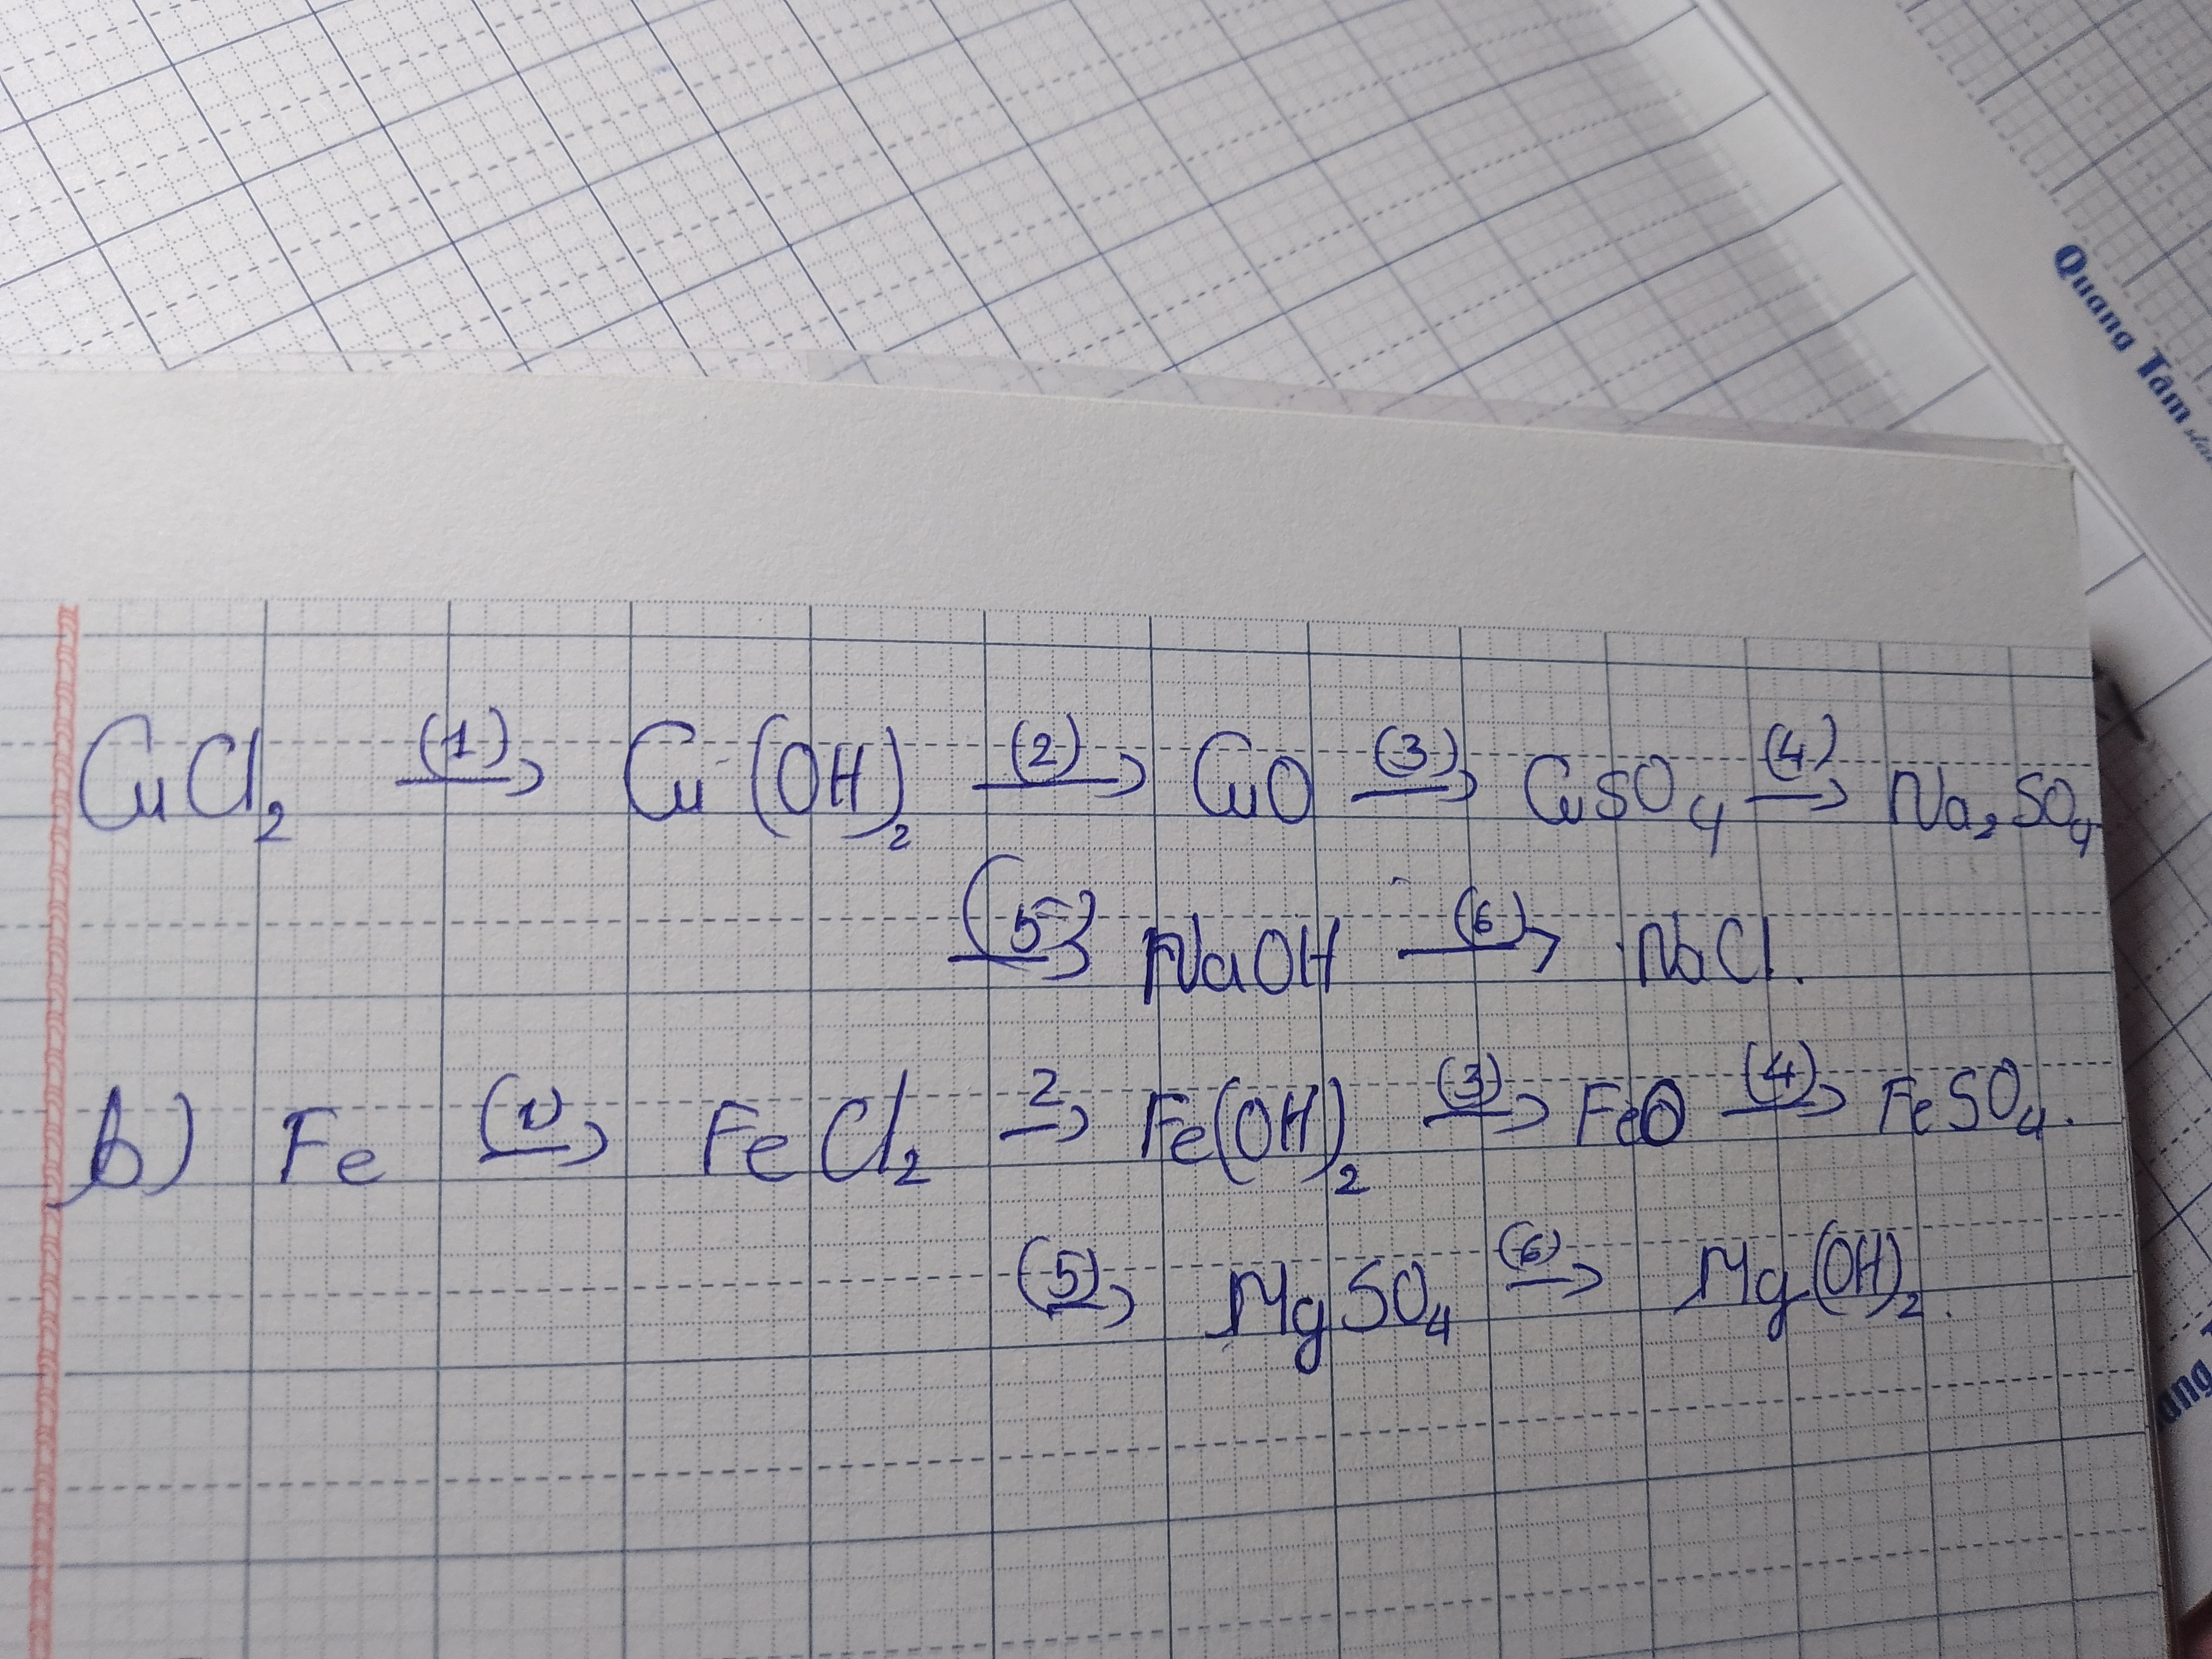 Quang Tâm
CuCl₂ (1)→ Cu(OH)₂ (2)→ CuO (3)→ CuSO₄ (4)→ Na₂SO₄
(5)→ NaOH (6)→ NaCl.
b) Fe (1)→ FeCl₂ 2→ Fe(OH)₂ (3)→ FeO (4)→ FeSO₄.
(5)→ MgSO₄ (6)→ Mg(OH)₂.